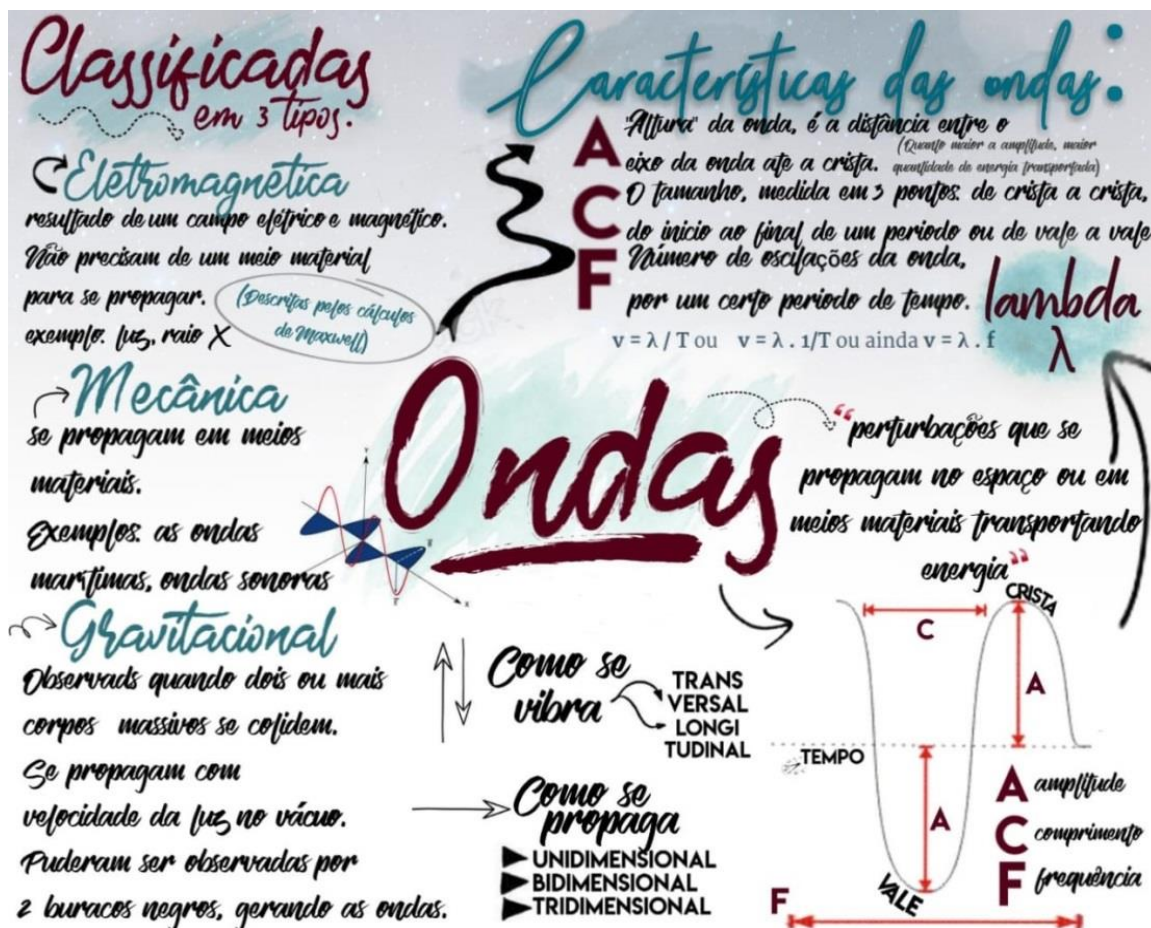 Classificadas
em 3 tipos:
Eletromagnética
resultado de um campo elétrico e magnético.
Não precisam de um meio material
para se propagar.
exemplo: luz, raio X
(Descritas pelos cálculos
de Maxwell)
Mecânica
se propagam em meios
materiais.
Exemplos: as ondas
marítimas, ondas sonoras
Gravitacional
Observads quando dois ou mais
corpos massivos se colidem.
Se propagam com
velocidade da luz no vácuo.
Puderam ser observadas por
2 buracos negros, gerando as ondas.
Características das ondas:
A
"Altura" da onda, é a distância entre o
eixo da onda ate a crista.
(Quanto maior a amplitude, maior
quantidade de energia transportada)
C
O tamanho, medida em 3 pontos: de crista a crista,
do inicio ao final de um periodo ou de vale a vale
F
Número de oscilações da onda,
por um certo periodo de tempo.
v = λ / T ou v = λ . 1/T ou ainda v = λ . f
lambda
λ
Ondas
"perturbações que se
propagam no espaço ou em
meios materiais transportando
energia"
Como se
vibra
TRANS
VERSAL
LONGI
TUDINAL
Como se
propaga
UNIDIMENSIONAL
BIDIMENSIONAL
TRIDIMENSIONAL
CRISTA
C
A
TEMPO
A
VALE
F
A amplitude
C comprimento
F frequência